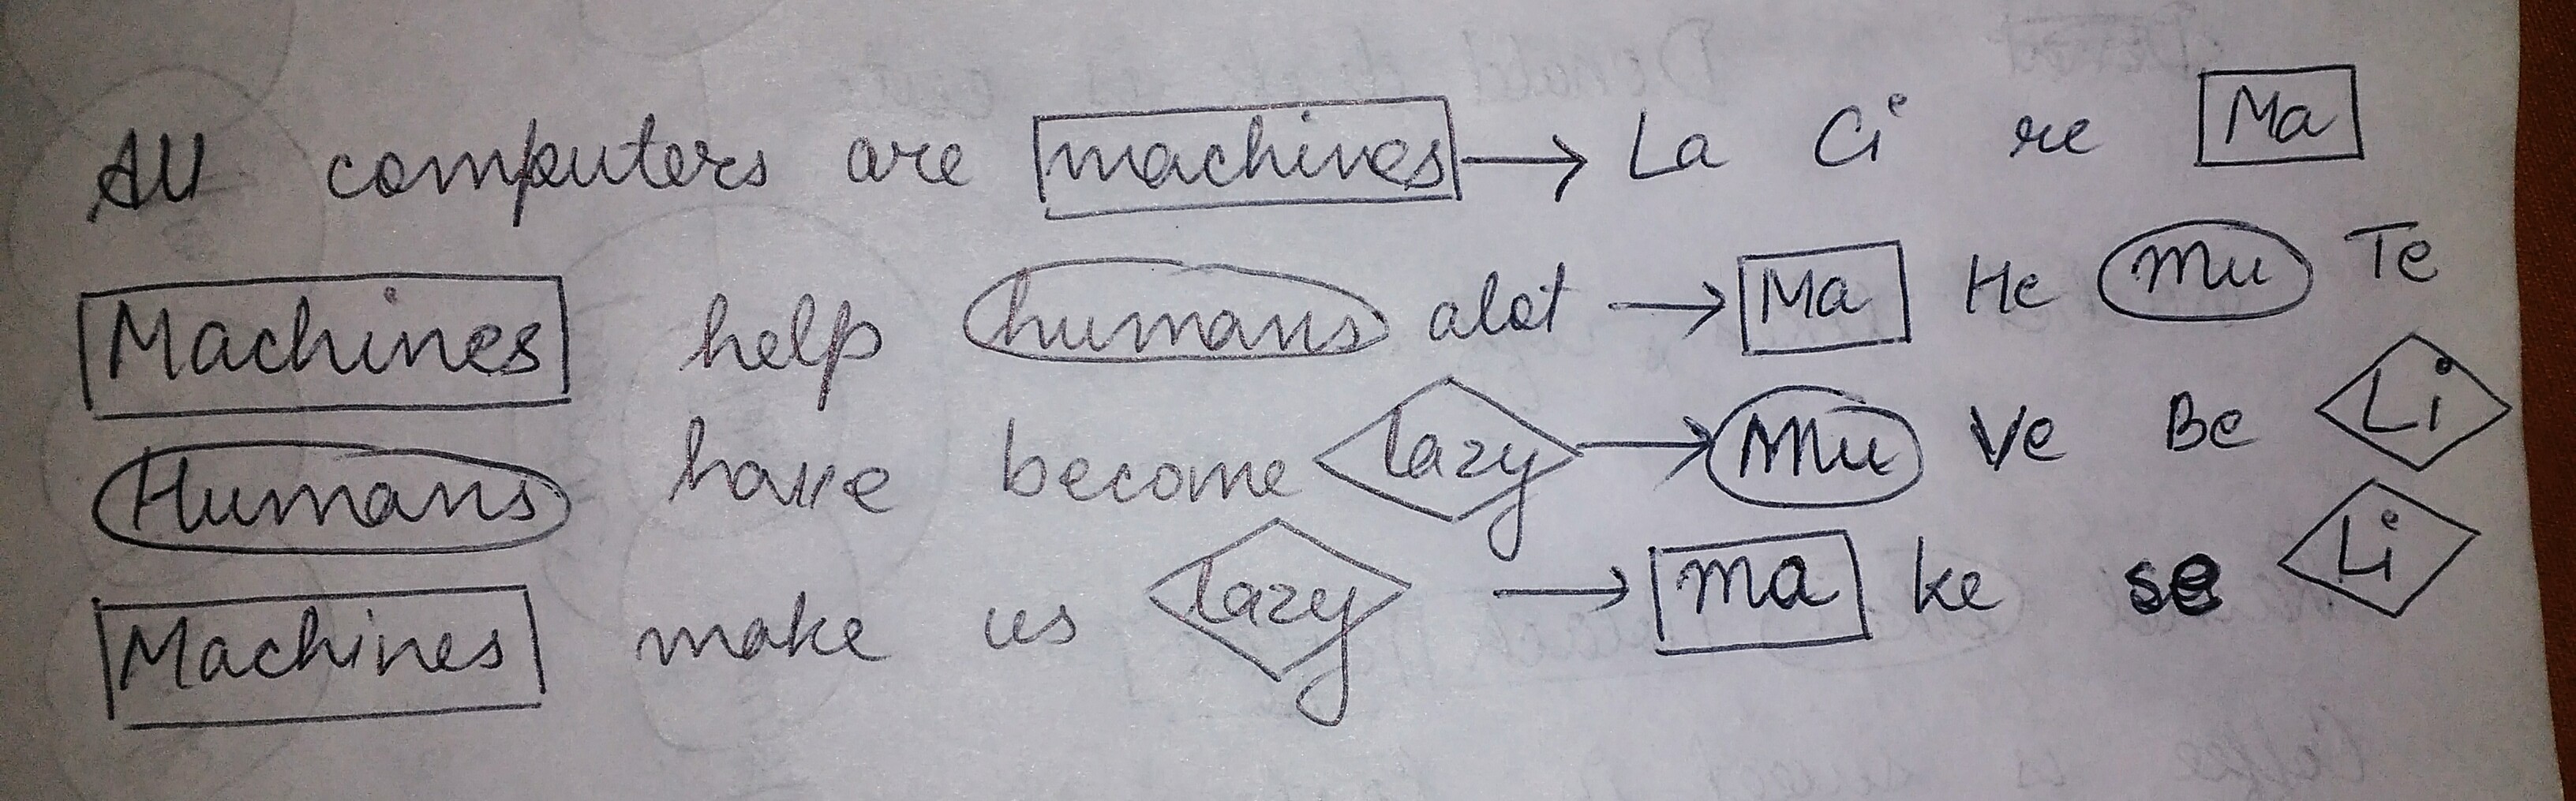 All computers are machines → La Ci re Ma
Machines help humans alot → Ma He Mu Te
Humans have become lazy → Mu Ve Be Li
Machines make us lazy → Ma ke se Li